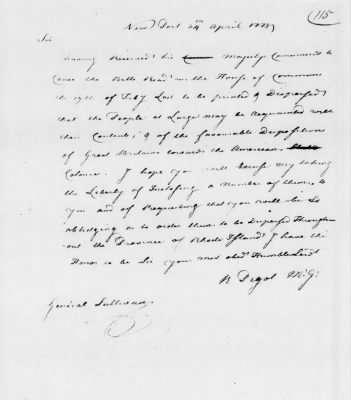 115
New Port 24th April 1778
Sir
Having Received his Majestys Commands to
Cause the Bills Read in the House of Commons
the 19th of Feby Last to be printed & Dispersed
that the People at Large may be Acquainted with
their Contents, & of the favourable Dispositions
of Great Britain towards the American
Colonies. I hope you will Excuse my taking
the Liberty of Inclosing a Number of them, to
you and of Requesting that you will be So
obliedging as to order them to be Dispersed Through
out the Province of Rhode Island I have the
Honor to be Sir your most obedt Humble Servt
R Pigot M:G:
General Sullivan